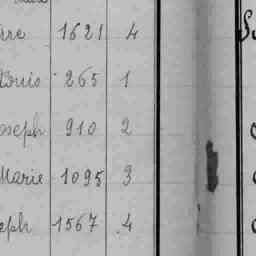 rre 1621 4
Louis 265 1
oseph 910 2
Marie 1095 3
eph 1567 4